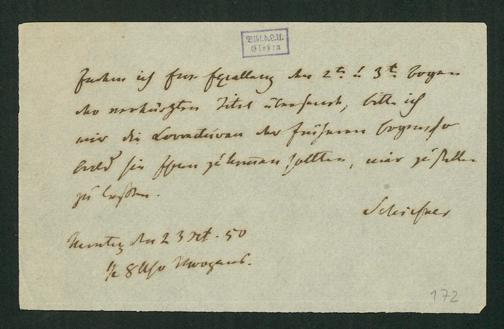 Bibl. d. L. U.
Gießen
Indem ich zur Erhaltung des 2t. & 3t. Bogen
den verkürzten Titel übersende, bitte ich
mir die Correcturen der früheren Bogen so
bald sie Ihnen zukommen sollten, mir zustellen
zu laßen.
Schiefner
Montag den 23 Oct. 50
1/2 8 Uhr Morgens.
172